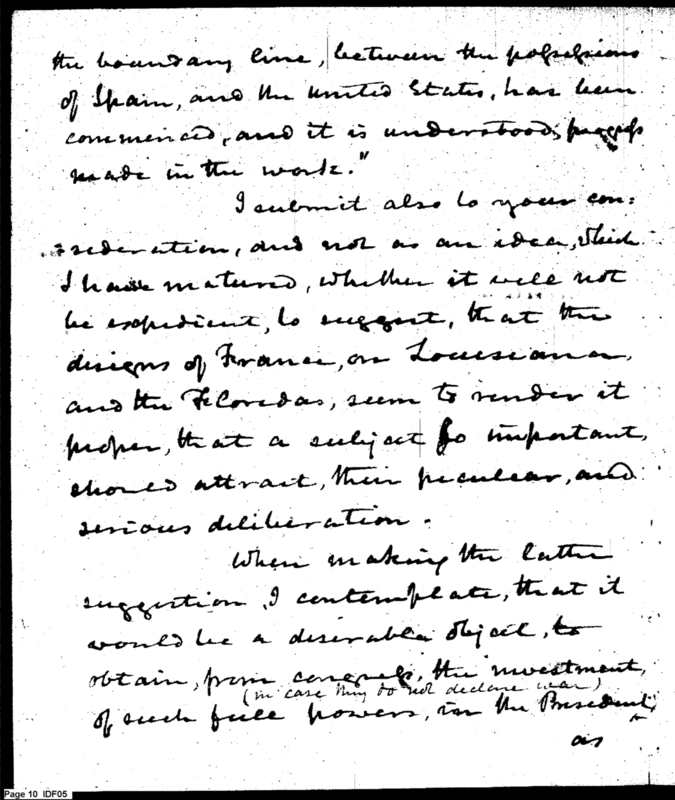 the boundary line, between the possessions
of Spain, and the United States, has been
commenced, and it is understood, progress
made in the work."
I submit also to your con=
=sideration, and not as an idea, which
I have matured, whether it will not
be expedient, to suggest, that the
designs of France, on Louisiana
and the Floridas, seem to render it
proper, that a subject so important,
should attract, their peculiar, and
serious deliberation.
When making the latter
suggestion, I contemplate, that it
would be a desirable object, to
obtain, from congress, the investment,
(in case they do not declare war)
of such full powers, in the President,
as
Page 10 IDF05